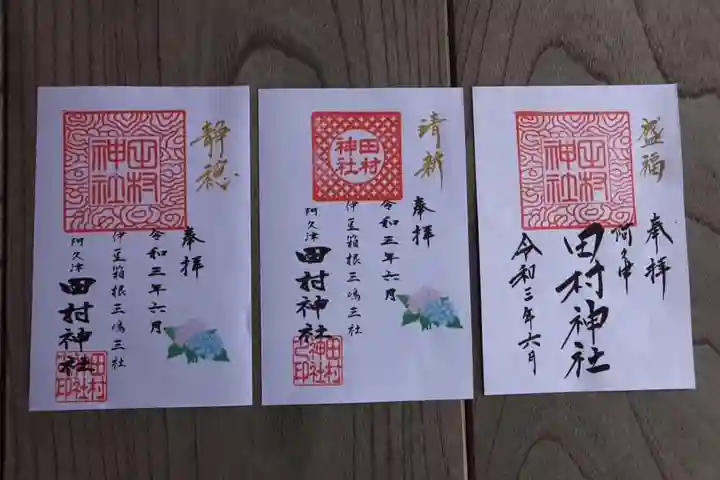 静穂
田村
神社
奉拝
令和三年六月
伊豆箱根三嶋三社
阿久津
田村神社
田村
神社
之印
清祈
田村
神社
奉拝
令和三年六月
伊豆箱根三嶋三社
阿久津
田村神社
田村
神社
之印
盛福
田村
神社
奉拝
阿久津
田村神社
令和三年六月